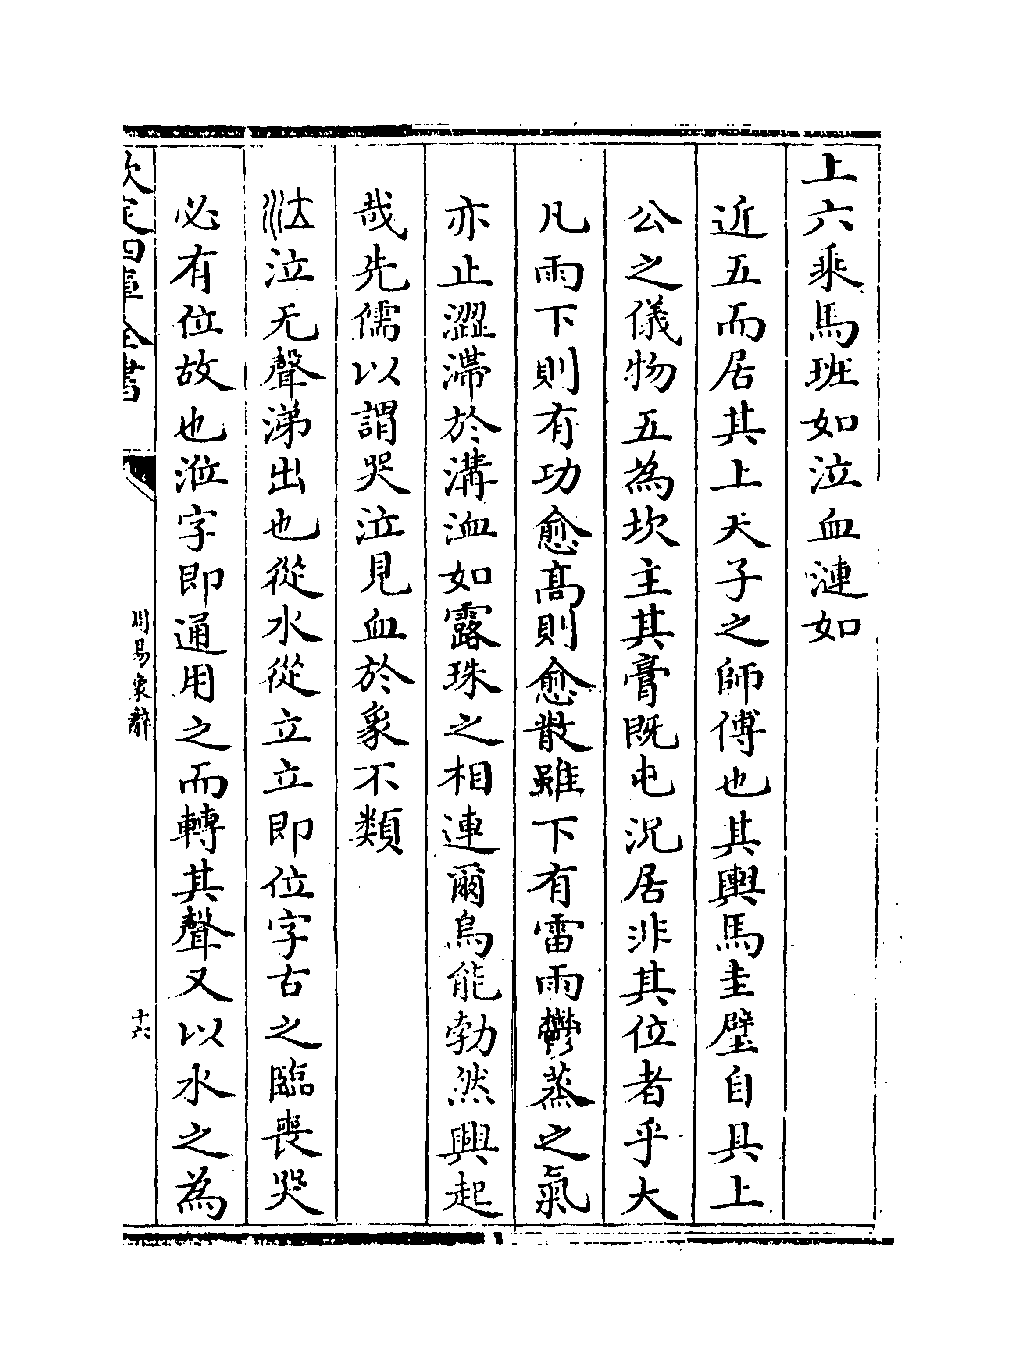 上六乘馬班如泣血漣如
近五而居其上天子之師傅也其輿馬圭璧自具上
公之儀物五為坎主其膏既屯況居非其位者乎大
凡雨下則有功愈髙則愈散雖下有雷雨鬱蒸之氣
亦止澀滯於溝洫如露珠之相連爾烏能勃然興起
哉先儒以謂哭泣見血於象不類
泣无聲涕出也從水從立立即位字古之臨喪哭
必有位故也涖字即通用之而轉其聲又以水之為
欽定四庫全書
周易象辭
十六